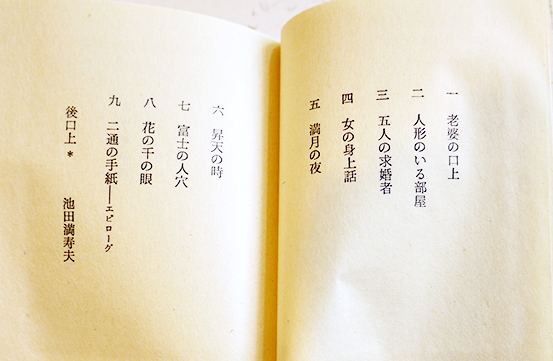 一 老婆の口上
二 人形のいる部屋
三 五人の求婚者
四 女の身上話
五 満月の夜
六 昇天の時
七 富士の人穴
八 花の千の眼
九 二通の手紙──エピローグ
後口上 * 池田満寿夫